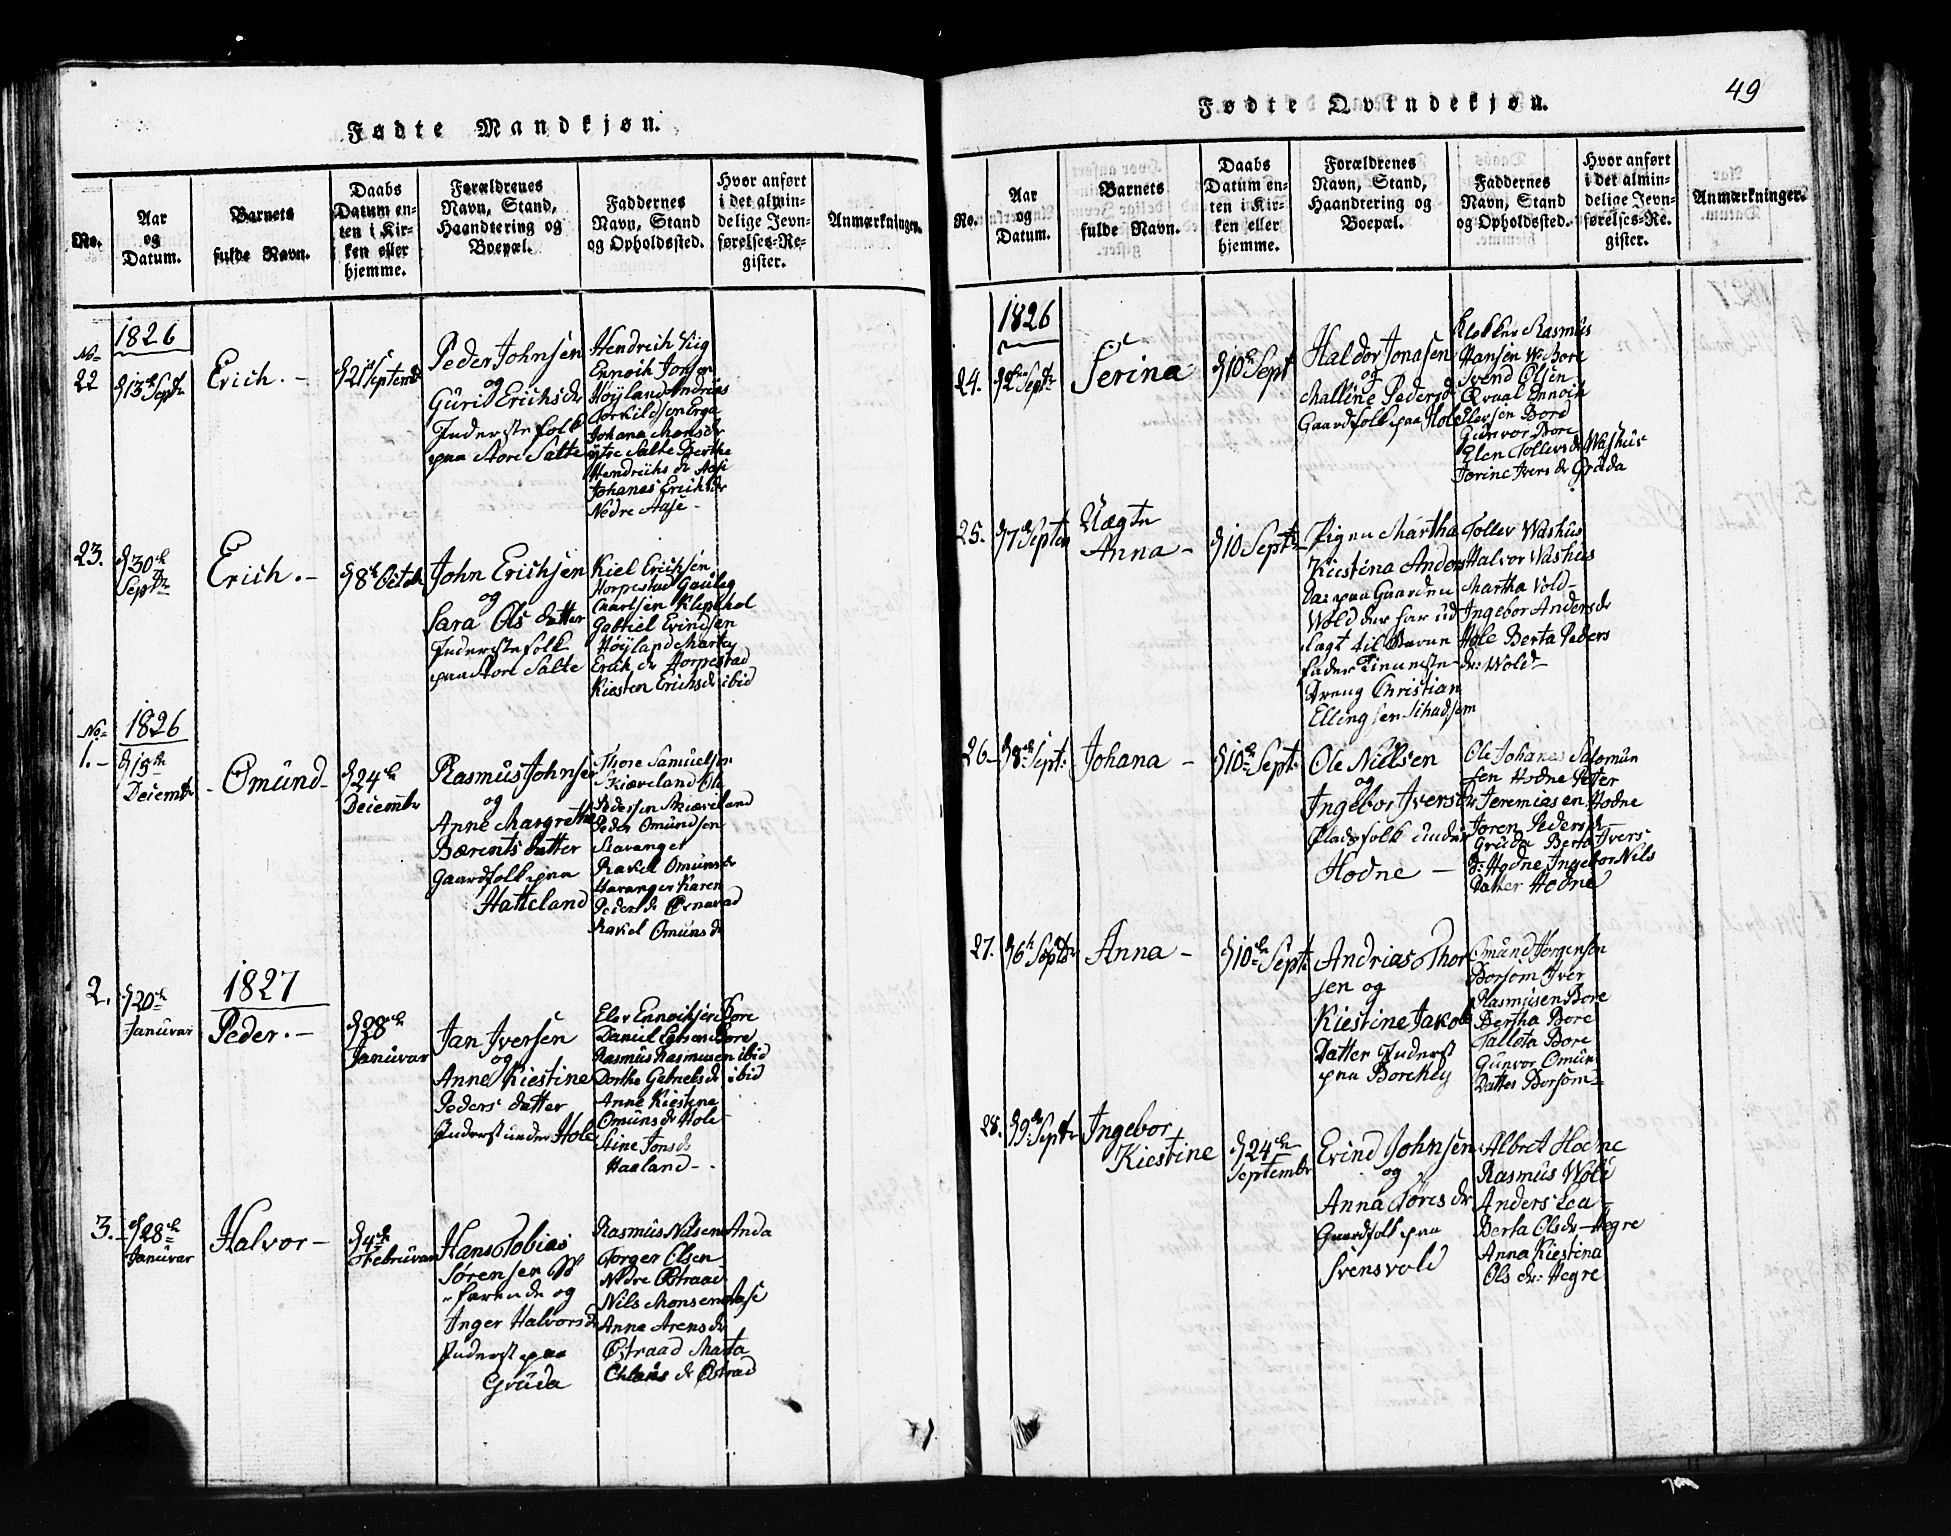 Fødte Mandkjøn.
No.
Aar
og
Datum.
Barnets
fulde Navn.
Daabs
Datum en-
ten i Kir-
ken eller
hjemme.
Forældrenes
Navn, Stand,
Haandtering og
Boepæl.
Faddernes
Navn, Stand
og Opholdssted.
Hvor anført
i det almin-
delige Jevn-
førelses-Re-
gister.
Anmærkninger.
1826
No
22
13 Septr
Erich. -
21 Septembr
Peder Johnsen
og
Gurid Erichs dr
Inderstefolk
paa Store Salte
Hendrich
Ennoch Jonsen
Høyland Andreas
Torkildsen Erga
Johana Mons dr
ytre Salte Berthe
Hendrichs dr Aase
Johanas Erichs dr
Nedre Aase -
23.
30
Septr
Erich. -
8 Octob
John Erichsen
og
Sara Ols datter
Inderstefolk
paa Store Salte
Kiel Erichsen
Horpestad
Carlsen
Gabriel Evindsen
Høyland
Erich dr Horpestad
Kiesten Erichs dr ibid
1826
No
1. -
15
Decembr
- Omund -
24
Decembr
Rasmus Johnsen
og
Anne Margrethe
Bærents datter
Gaardfolk paa
Hatteland
Thore Samuelsen
Skiæveland Ole
Pedersen Skiæveland
Peder Omundsen
Stavanger
Rakel Omuns dr
Karen
Peders dr
Rakel Omuns dr
1827
2.
20
Januvar
Peder. -
28
Januvar
Jan Iversen
og
Anne Kiestine
Peders datter
Inderst under Hole
Elev Ennoksen Bore
Daniel Larsen Bore
Rasmus Rasmusen ibid
Dorthe Gabriels dr ibid
Anne Kiestine
Omuns dr Hole
Stine Jons dr
Haaland -
3. -
28
Januvar
Halvor -
4
Februvar
Hans Tobias
Sørensen
farende og
Inger Halvors dr
Inderst paa
Gruda
Rasmus Nilsen Anda
Torger Olsen
Nedre Østraad
Nils Monsen Aase
Anne Arens dr
Østraad Marta
dr Østrad
Fødte Qvindekjøn.
49
No.
Aar
og
Datum.
Barnets
fulde Navn.
Daabs
Datum en-
ten i Kir-
ken eller
hjemme.
Forældrenes
Navn, Stand,
Haandtering og
Boepæl.
Faddernes
Navn, Stand
og Opholdssted.
Hvor anført
i det almin-
delige Jevn-
førelses-Re-
gister.
Anmærkninger.
1826
24.
2 Septr
Serina
10 Sept
Haldor Jonasen
og
Malline Peders d
Gaardfolk paa Hole
Klokker Rasmus
Hansen Bore
Svend Olsen
Qvaal Ennoch
Elevsen Bore
Gunvor Bore
Elen Tollevs dr Washus
Jorine Ivers dr Gruda
25.
7 Septem
Uægte
Anna -
10 Septr
Pigen Martha
Kiestina Anders
Da: paa Gaarden
Wold der har ud
lagt til Barne
fader Tieneste
Dreng Christian
Ellingsen
Tollev Washus
Halvor Washus
Martha Vold -
Ingebor Anders dr
Hole Berta Peders
dr: Wold -
26 -
8 Sept:
Johana -
10 Sept:
Ole Nielsen
og
Ingebor Ivers dr
Pladsfolk under
Hodne -
Ole Johanes Salomon
sen Hodne Petter
Jeremiasen Hodne
Joren Peders dr
Gruda Berta Ivers
dr: Hodne Ingebor Nils
Datter Hodne
27.
6 Septbr
Anna -
10 Sept:
Andrias Thor
sen og
Kiestine Jakob
Datter Inderst
paa
Omund Jorgenson
Borsom Iver
Rasmusen Bore
Bertha Bore
Bore
Gunvor Omun
Datter Borsom -
28.
9 Septr
Ingebor
Kiestine
24
Septembr
Evind Johnsen
og
Anna Tøres dr
Gaardfolk paa
Svensvold
Albret Hodne
Rasmus Wold
Anders Lea -
Berta Ols dr - Hegre
Anna Kiestina
Ols dr: Hegre